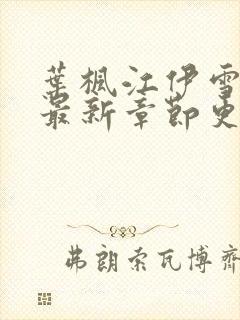 葉楓江伊雪
最新章節更
弗朗索瓦博齊